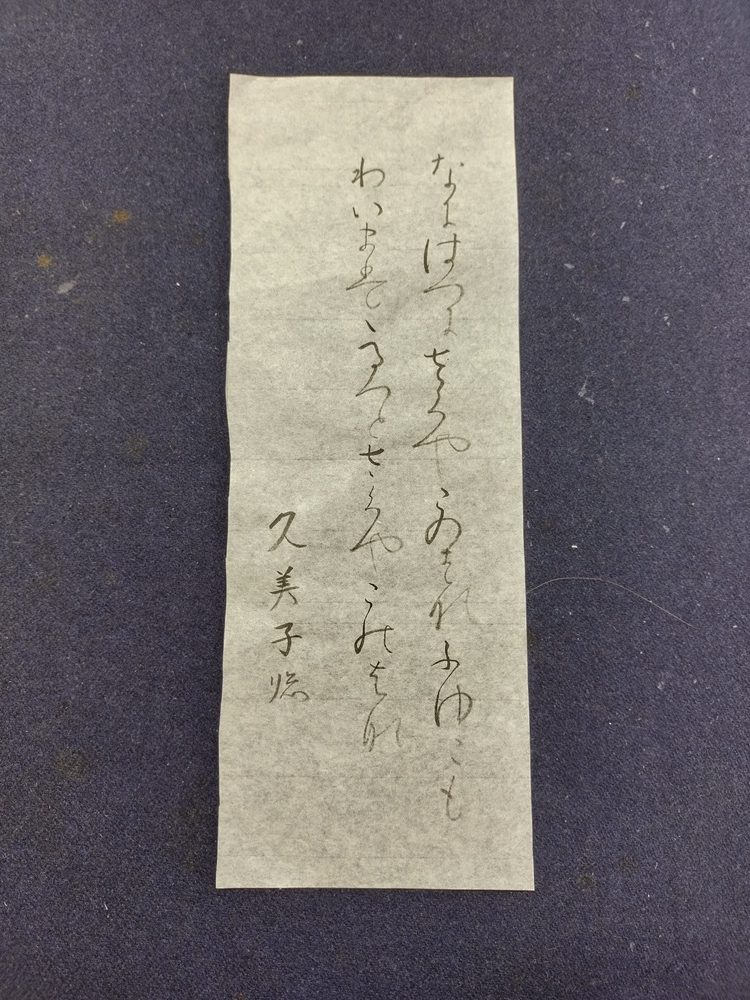 なにはつにさくやこのはなふゆこも
りいまはゝるへとさくやこのはな
久美子臨